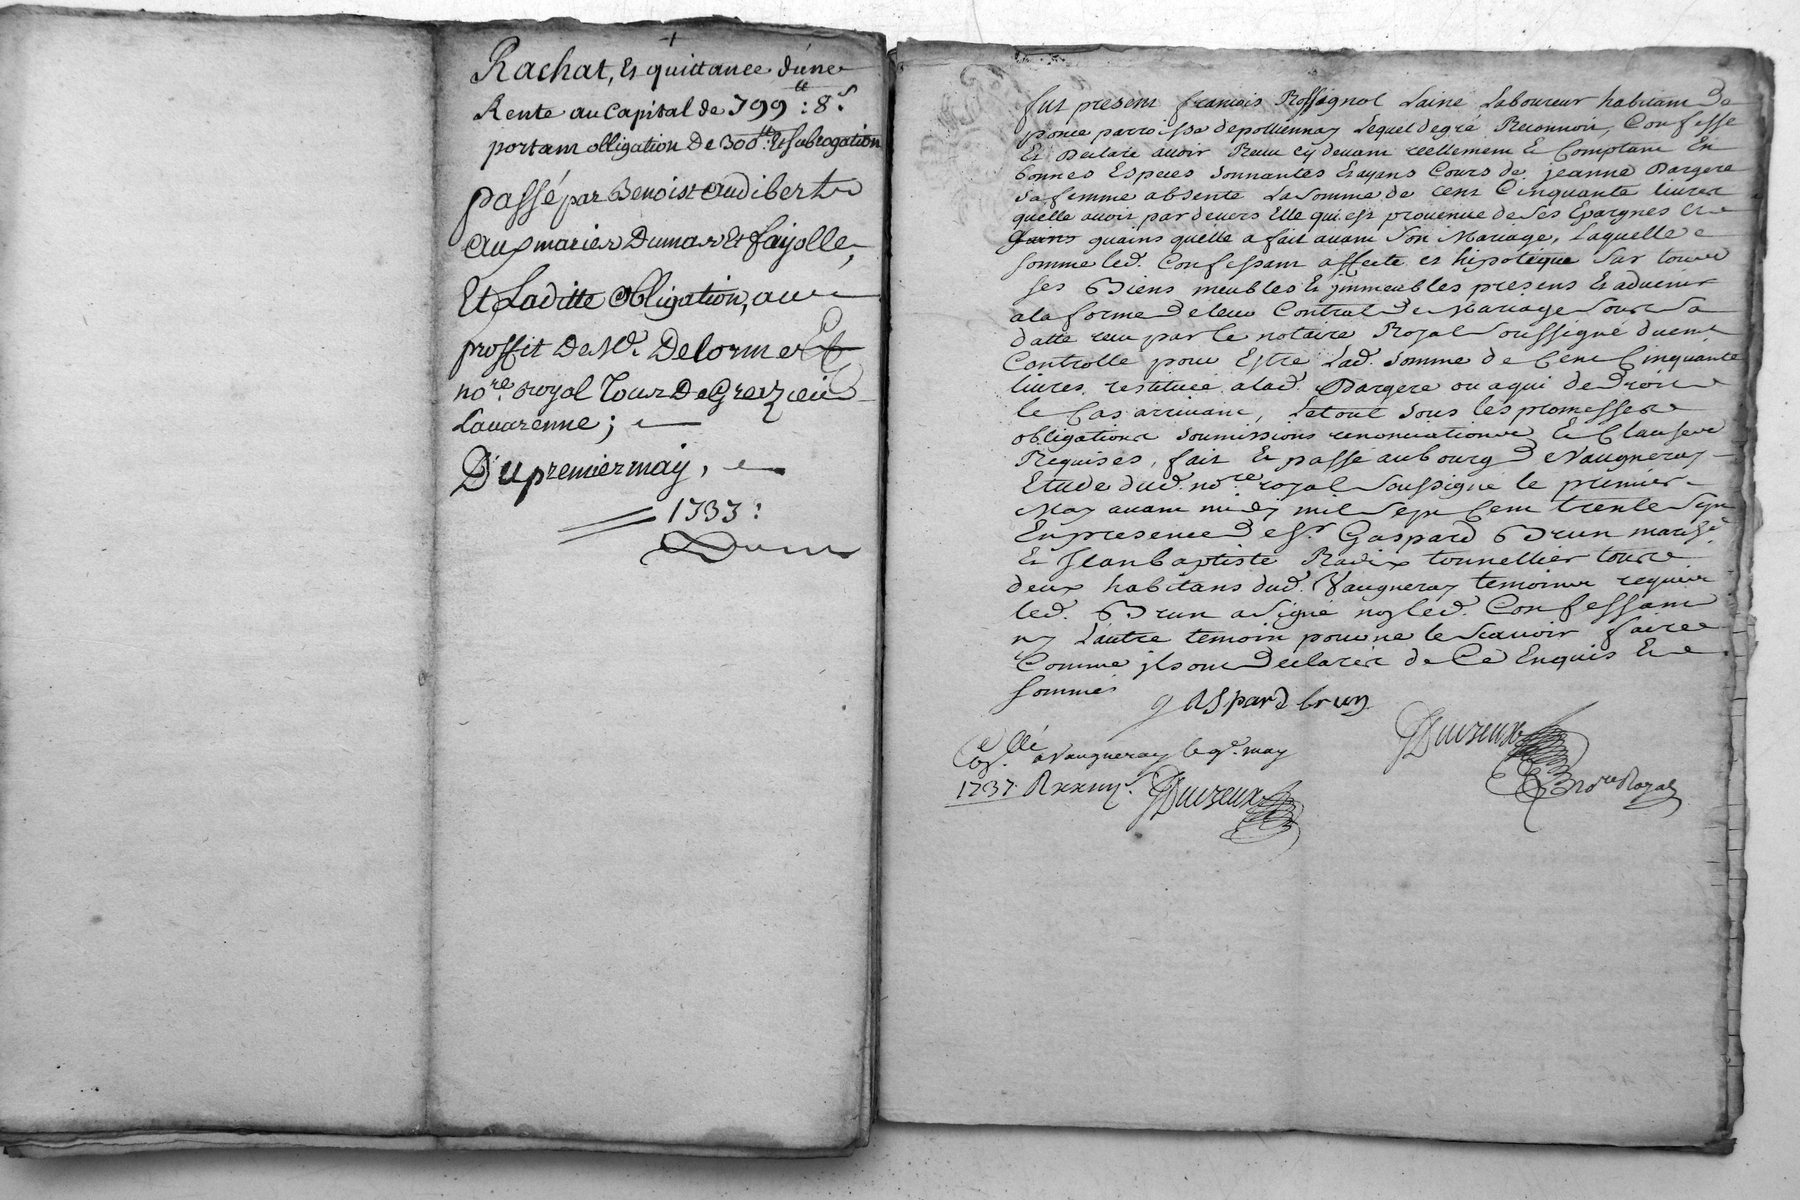 Rachat, et quittance d'une
Rente au Capital de 799 ₶: 8 s
portant obligation de 300 ₶ et subrogation
passé par Benoist audibert
aux mariés Dumas et fayolle,
Et Laditte obligation, au
proffit De Mr. Delorme
nore. royal Tous De Greizieu
Lavarenne;
Du premier may,
1737:
fut présent francois Rossignol Laine Laboureur habitant de
ponce parroisse de pollionnay Lequel de gré Reconnoit, Confesse
Et Declare avoir Receu cy devant reellement Et Comptant En
bonnes Especes Sonnantes Et ayans Cours de jeanne Dargere
Sa femme absente La Somme de cent Cinquante livres
quelle avoit par devers Elle qui est provenue de Ses Epargnes Et
gains quains quelle a fait avant Son Mariage, Laquelle
Somme led. Confessant affecte et hipoteque Sur tous
Ses Biens meubles Et jmmeubles presens Et advenir
a la forme de leur Contrat de Mariage Sous Sa
datte receu par le notaire Royal Soussigné duement
Controllé pour Estre Lad. Somme de Cent Cinquante
livres restituée a lad. Dargere ou a qui de Droit
le Cas arrivant, Le tout Sous les promesses
obligations Soumissions renonciations Et Clauses
Requises, fait Et passé au bourg de Vaugneray
Etude dud. nore royal Soussigné le premier
May avant midy mil Sept Cent trente Sept
En presence de Sr. Gaspard Brun march.d
Et Jean Baptiste Radix tonnellier tous
deux habitans dud. Vaugneray temoins requis
led. Brun a Signé non led. Confessant
ny L'autre temoin pour ne le Scavoir faire
Comme jls ont Declarés de Ce Enquis Et
Sommés
gaspard brun
Collé a Vaugneray le 9e. may
1737. R
nore Royal